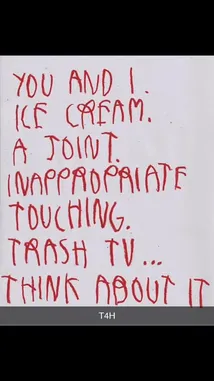 YOU AND I.
ICE CREAM.
A JOINT.
INAPPROPRIATE
TOUCHING.
TRASH TV...
THINK ABOUT IT
T4H